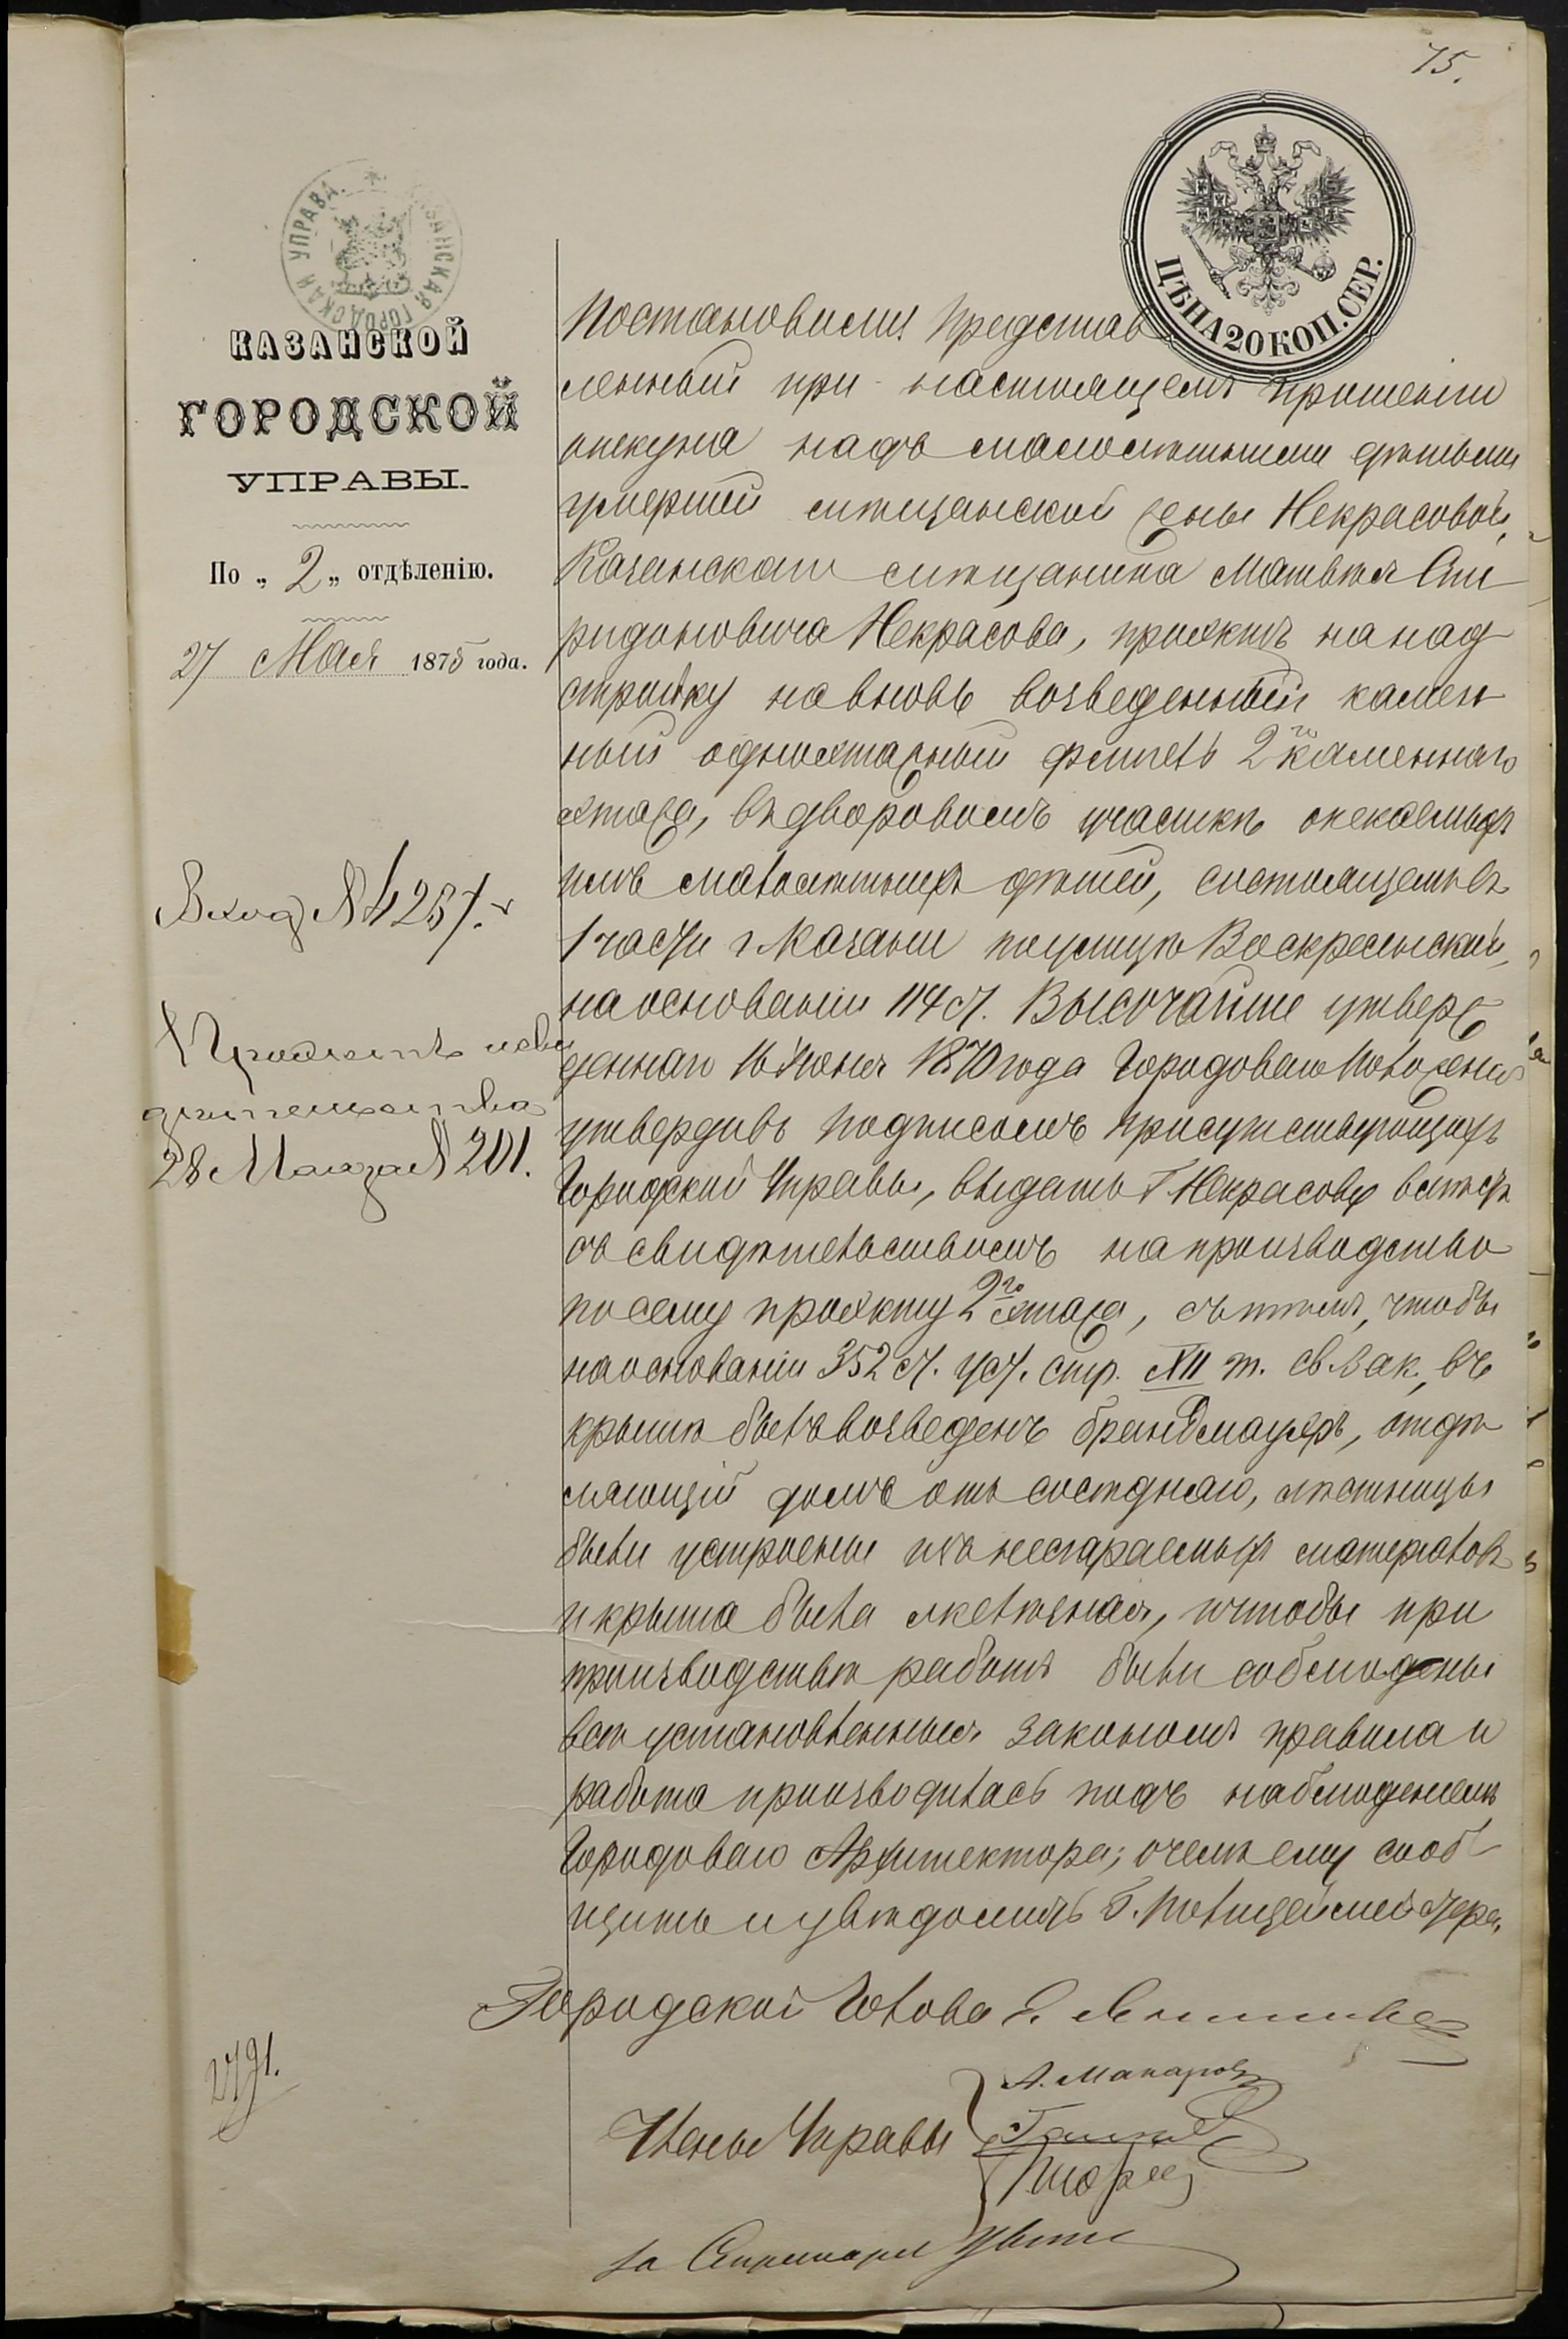 75.
КАЗАНСКАЯ ГОРОДСКАЯ УПРАВА
ЦѢНА 20 КОП. СЕР.
КАЗАНСКОЙ
ГОРОДСКОЙ
УПРАВЫ.
По „ 2 „ отдѣленію.
27 Мая 1875 года.
Вход № 4257.
Проектъ и сви
дѣтельство
28 Мая за № 201.
2791.
Постановили: Представ
ленный при настоящемъ прошеніи
опекуна надъ малолѣтными дѣтьми
умершей мѣщанской жены Некрасовой,
Казанскаго мѣщанина Матвѣя Спи
ридоновича Некрасова, проэктъ на над
стройку на вновь возведенный камен
ный одноэтажный флигель 2го каменнаго
этажа, въ дворовомъ участкѣ опекаемыхъ
имъ малолѣтныхъ дѣтей, состоящемъ въ
1 части г. Казани по улицѣ Воскресенской,
на основаніи 114 ст. Высочайше утверж
деннаго 16 Іюня 1870 года Городоваго Положенія
утвердивъ подписомъ присутствующихъ
Городской Управы, выдать Г. Некрасову вмѣстѣ
съ свидѣтельствомъ на производство
по сему проэкту 2го этажа, съ тѣмъ, чтобы
на основаніи 352 ст. уст. стр. XII т. св. зак., въ
крышѣ былъ возведенъ брандмауеръ, отдѣ
ляющій домъ отъ сосѣдняго, лѣстницы
были устроены изъ несгараемыхъ матерьяловъ
и крыша была желѣзная, и чтобы при
производствѣ работъ были соблюдены
всѣ установленныя закономъ правила и
работа производилась подъ наблюденіемъ
Городоваго Архитектора; о чемъ ему сооб
щить и увѣдомить Г. Полицеймейстера.
Городской Голова Е.
А. Макаровъ
Члены Управы
за Секретаря